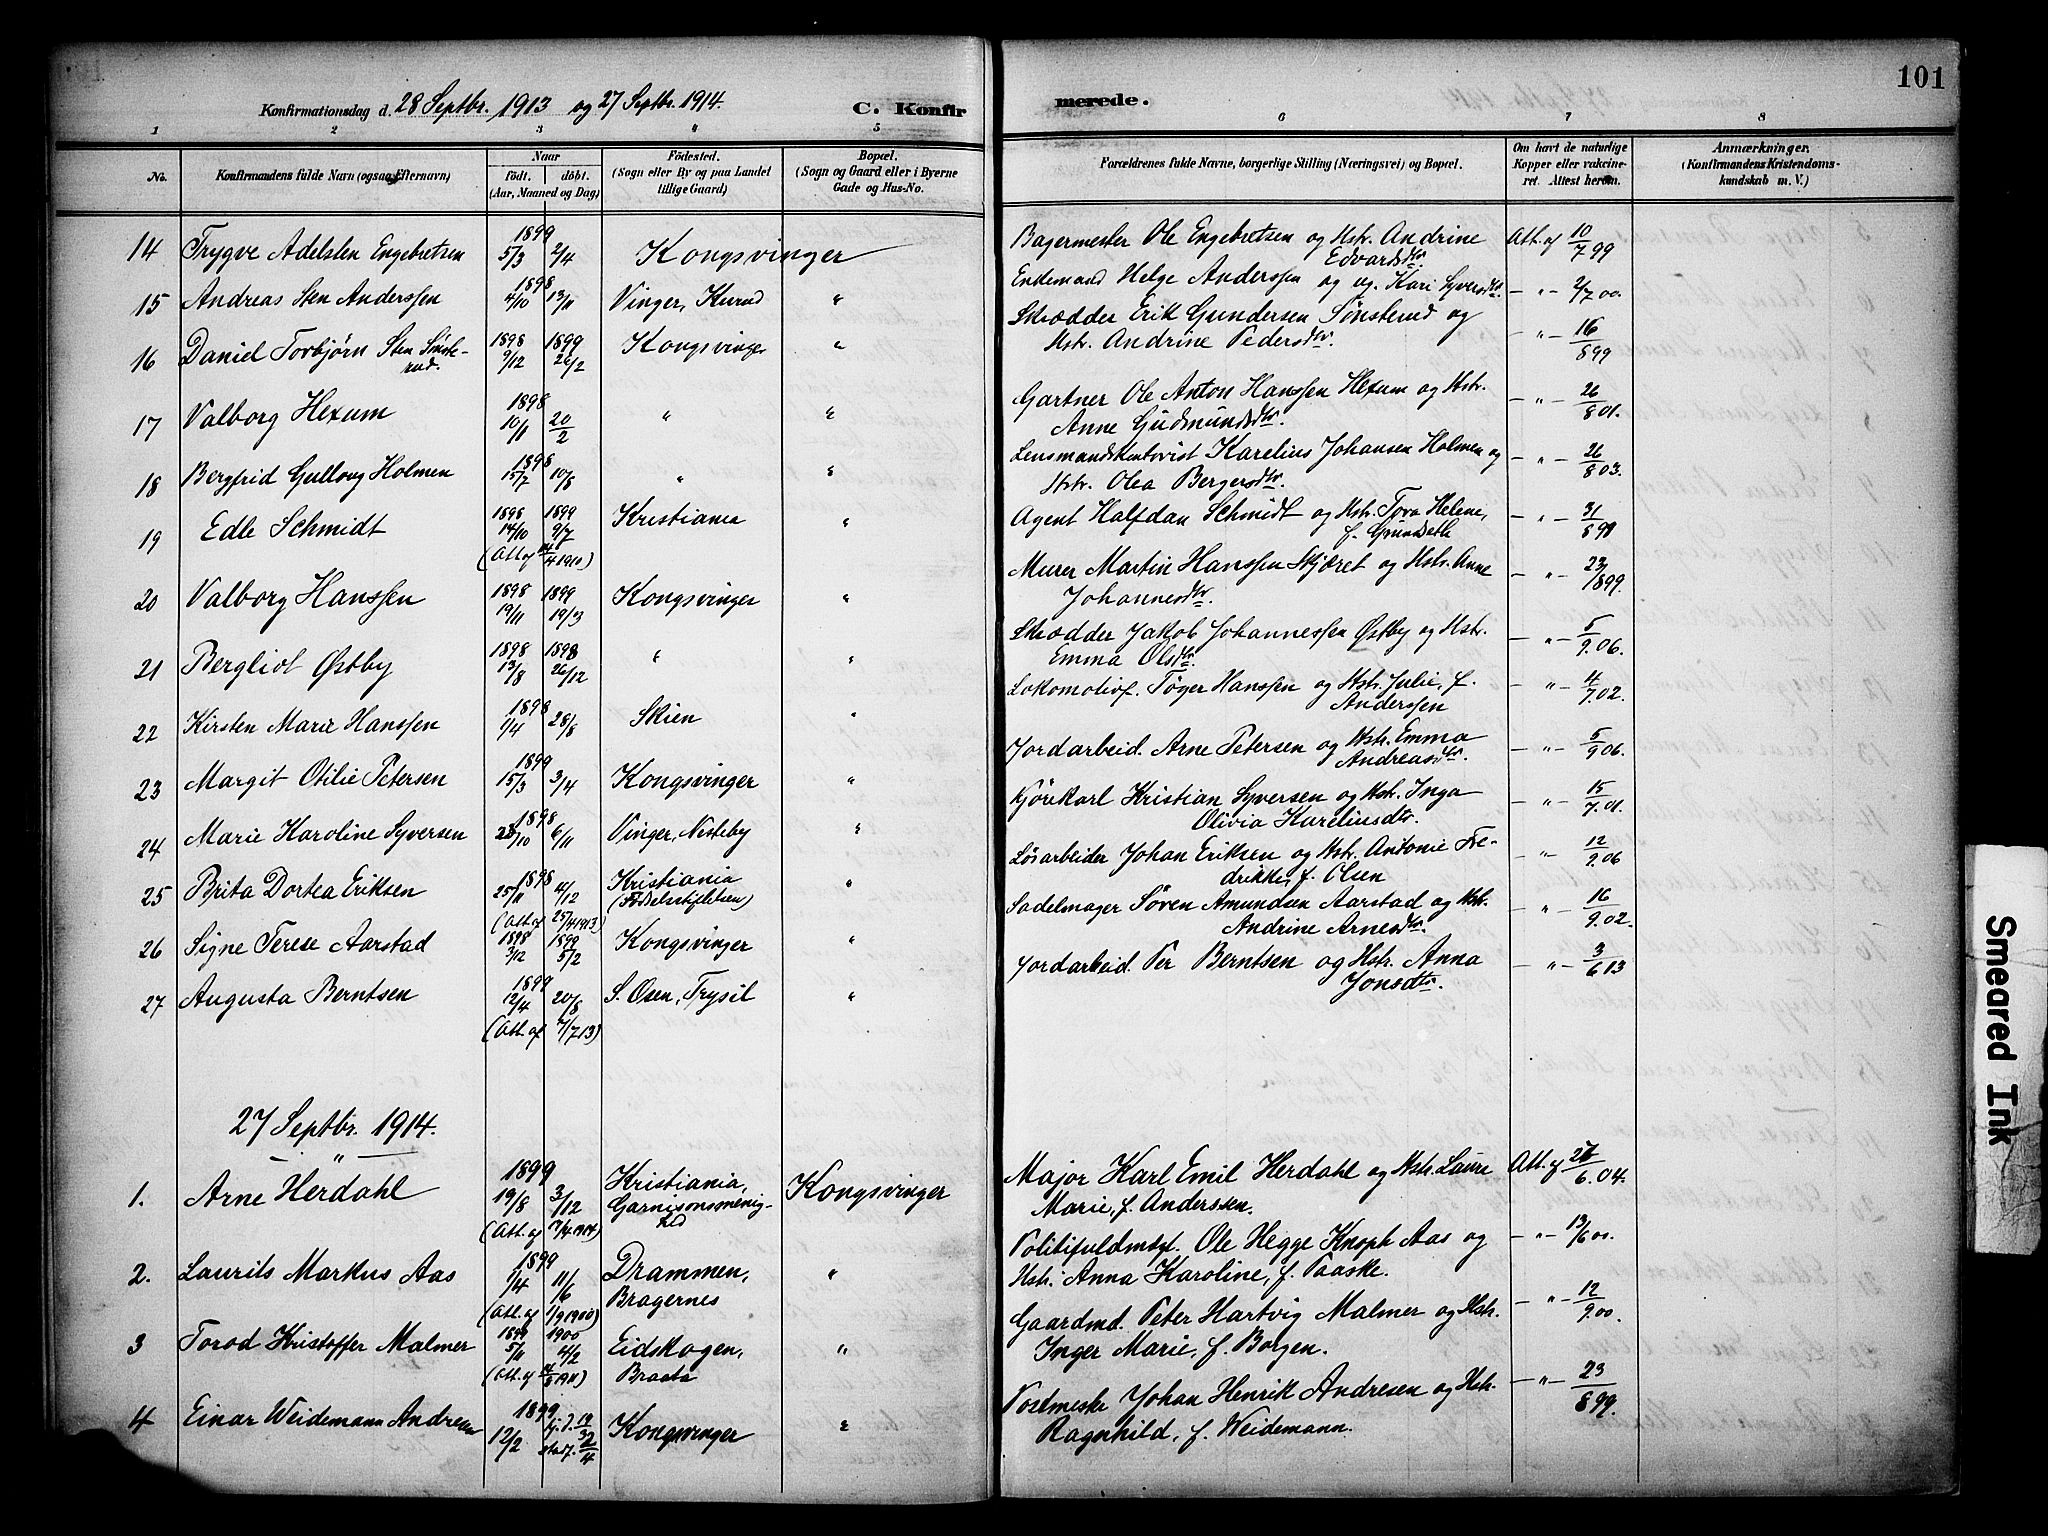 101
Konfirmationsdag d. 28 Septbr. 1913 og 27 Septbr. 1914. C. Konfirmerede.
1 2 3 4 5 6 7 8
No. Konfirmandens fulde Navn (ogsaa Efternavn) Naar födt. döbt. (Aar, Maaned og Dag) Födested. (Sogn eller By og paa Landet tillige Gaard) Bopæl. (Sogn og Gaard eller i Byerne Gade og Hus-No. Forældrenes fulde Navne, borgerlige Stilling (Næringsvei) og Bopæl. Om havt de naturlige Kopper eller vakcineret. Attest herom. Anmærkninger. (Konfirmandens Kristendomskundskab m. V.)
14 Trygve Adelsten Engebretsen 1899 5/3 2/4 Kongsvinger Bagermester Ole Engebretsen og Hstr. Andrine Edvardsdtr. Att. af 10/7 99
15 Andreas Sten Anderssen 1898 4/10 13/11 Vinger, Kurud " Enkemand Helge Anderssen og ug. Kari Syversdtr. - " - 2/7 00.
16 Daniel Torbjørn Sten Sønsterud. 1898 9/12 1899 26/2 Kongsvinger " Skrædder Erik Gundersen Sønsterud og Hstr. Andrine Pedersdtr. - " - 16/8 99
17 Valborg Hexum 1898 10/1 20/2 " " Gartner Ole Anton Hanssen Hexum og Hstr. Anne Gudmundsdtr. - " - 26/8 01.
18 Bergfrid Gullaug Holmen 1898 15/7 10/8 " " Lensmandskontorist Karelius Johansen Holmen og Hstr. Olea Bergersdtr. - " - 26/8 03.
19 Edle Schmidt 1898 14/10 1899 9/7 (Att. af 14/4 1910) Kristiania " Agent Halfdan Schmidt og Hstr. Tora Helene, f. Grundseth - " - 31/8 99
20 Valborg Hanssen 1898 19/11 1899 19/3 Kongsvinger " Murer Martin Hanssen Skjæret og Hstr. Anne Johannesdtr. - " - 23/1899.
21 Bergliot Østby 1898 13/8 1898 26/12 " " Skrædder Jakob Johannessen Østby og Hstr. Emma Olsdtr. - " - 5/9.06.
22 Kirsten Marie Hanssen 1898 1/4 28/8 Skien " Lokomotivf. Töger Hanssen og Hstr. Julie, f. Anderssen - " - 4/7.02.
23 Margit Otilie Petersen 1899 15/3 3/4 Kongsvinger " Jordarbeid. Arne Petersen og Hstr. Emma Andreasdtr. - " - 5/9 06.
24 Marie Karoline Syversen 1898 28/10 6/11 Vinger, Nesteby " Kjörekarl Kristian Syversen og Hstr. Inga Olivia Kareliusdtr. - " - 15/7.01.
25 Brita Dortea Eriksen 1898 25/11 4/12 (Att. af 25/4 1913) Kristiania (Fødselsstiftelsen) " Løsarbeider Johan Eriksen og Hstr. Antonie Fredrikke, f. Olsen - " - 12/9.06
26 Signe Terese Aarstad 1898 3/12 1899 5/2 Kongsvinger " Sadelmager Søren Amundsen Aarstad og Hstr. Andrine Arnesdtr. - " - 16/9.02.
27 Augusta Berntsen 1899 12/4 20/8 (Att. af 7/7 13) S. Osen, Trysil " Jordarbeid. Per Berntsen og Hstr. Anna Jonsdtr. - " - 3/6 13
27 Septbr. 1914.
1. Arne Herdahl 1899 19/8 3/12 (Att. af 7/4 1914) Kristiania, Garnisonsmenighed Kongsvinger Major Karl Emil Herdahl og Hstr. Laura Marie, f. Anderssen. Att. af /6.04.
2. Laurits Markus Aas 1899 1/4 11/6 (Att. af 1/9 1900) Drammen, Bragernes " Politifuldmægt. Ole Hegge Knoph Aas og Hstr. Anna Karoline, f. Paaske. - " - 13/6 00.
3 Torod Kristoffer Malmer 1899 5/11 1900 4/2 (Att. af 1911) Eidskogen, Braata " Gaardmd. Peter Hartvig Malmer og Hstr. Inger Marie, f. Borgen. - " - 12/9.00.
4 Einar Weidemann Andresen 1899 12/2 hj. d. 19/3 stadf. 2/4 Kongsvinger " Postmester Johan Henrik Andresen og Hstr. Ragnhild, f. Weidemann. - " - 23/8 99.
Smeared Ink